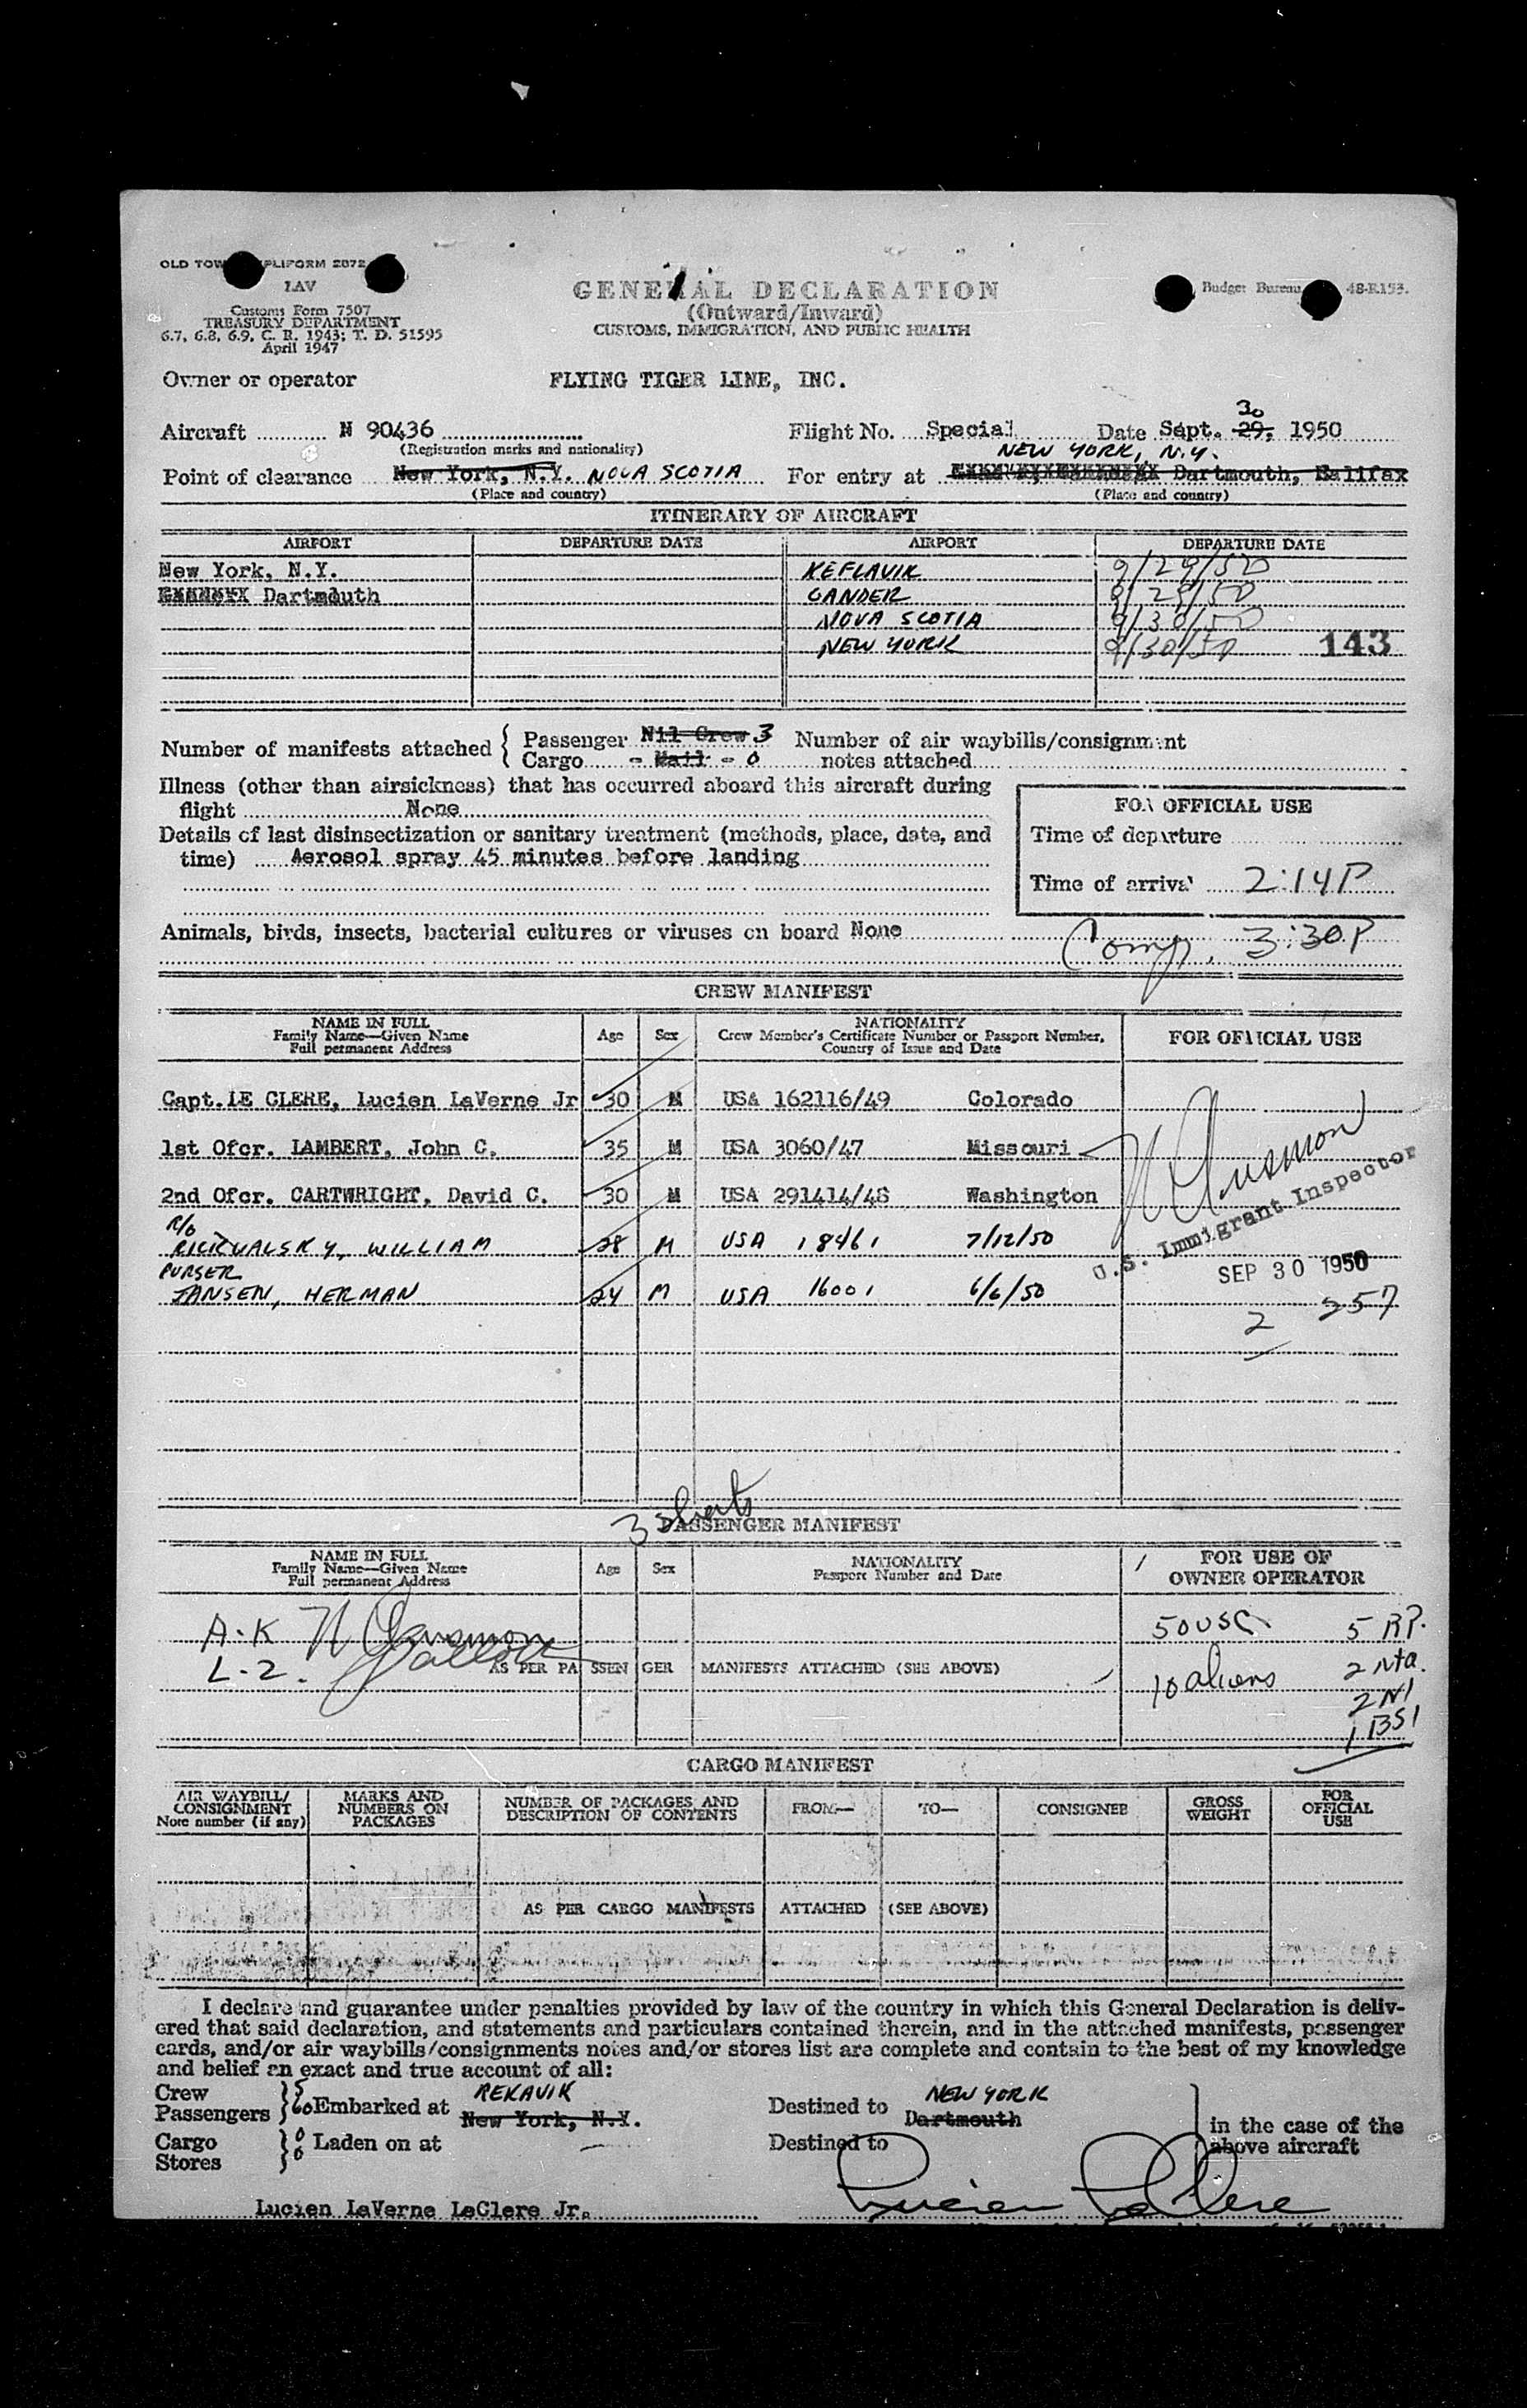 OLD TOW PLIFORM 2872
IAV
Customs Form 7507
TREASURY DEPARTMENT
6.7, 6.8, 6.9, C. R. 1943; T. D. 51595
April 1947
GENERAL DECLARATION
(Outward/Inward)
CUSTOMS, IMMIGRATION, AND PUBLIC HEALTH
Budget Bureau 48-R153.
Owner or operator FLYING TIGER LINE, INC.
30
Aircraft N 90436 Flight No. Special Date Sept. 29, 1950
(Registration marks and nationality) NEW YORK, N.Y.
Point of clearance New York, N.Y. NOVA SCOTIA For entry at Dartmouth, Halifax
(Place and country) (Place and country)
ITINERARY OF AIRCRAFT
AIRPORT DEPARTURE DATE AIRPORT DEPARTURE DATE
New York, N.Y. KEFLAVIK 9/29/50
Dartmouth GANDER 9/29/50
NOVA SCOTIA 9/30/50
NEW YORK 9/30/50 143
Number of manifests attached { Passenger Nil Crew 3 Number of air waybills/consignment
Cargo - Mail - 0 notes attached
Illness (other than airsickness) that has occurred aboard this aircraft during
flight None
FOR OFFICIAL USE
Details of last disinsectization or sanitary treatment (methods, place, date, and
time) Aerosol spray 45 minutes before landing
Time of departure
Time of arrival 2:14P
Animals, birds, insects, bacterial cultures or viruses on board None
Comp. 3:30P
CREW MANIFEST
NAME IN FULL
Family Name—Given Name
Full permanent Address
Age Sex
NATIONALITY
Crew Member's Certificate Number or Passport Number,
Country of Issue and Date
FOR OFFICIAL USE
Capt. LE CLERE, Lucien LaVerne Jr 30 M USA 162116/49 Colorado
1st Ofcr. LAMBERT, John C. 35 M USA 3060/47 Missouri
2nd Ofcr. CARTWRIGHT, David C. 30 M USA 291414/48 Washington
R/O
RICKVALSKY, WILLIAM 28 M USA 18461 7/12/50
PURSER
JANSEN, HERMAN 24 M USA 16001 6/6/50
U.S. Immigrant Inspector
SEP 30 1950
2 257
3 sheets
PASSENGER MANIFEST
NAME IN FULL
Family Name—Given Name
Full permanent Address
Age Sex
NATIONALITY
Passport Number and Date
FOR USE OF
OWNER OPERATOR
A-K 50 USC 5 RP.
L-Z. AS PER PASSENGER MANIFESTS ATTACHED (SEE ABOVE) 10 aliens 2 Nta.
2 NI
1 BSI
CARGO MANIFEST
AIR WAYBILL/
CONSIGNMENT
Note number (if any)
MARKS AND
NUMBERS ON
PACKAGES
NUMBER OF PACKAGES AND
DESCRIPTION OF CONTENTS
FROM— TO— CONSIGNEE
GROSS
WEIGHT
FOR
OFFICIAL
USE
AS PER CARGO MANIFESTS ATTACHED (SEE ABOVE)
I declare and guarantee under penalties provided by law of the country in which this General Declaration is deliv-
ered that said declaration, and statements and particulars contained therein, and in the attached manifests, passenger
cards, and/or air waybills/consignments notes and/or stores list are complete and contain to the best of my knowledge
and belief an exact and true account of all:
Crew 5 REKAVIK NEW YORK
Passengers 60 Embarked at New York, N.Y. Destined to Dartmouth
in the case of the
above aircraft
Cargo 0 Laden on at Destined to
Stores 0
Lucien LaVerne LeClere Jr. Lucien LeClere